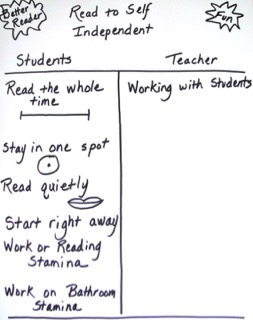 Better
Reader
Read to Self
Independent
Fun
Students
Teacher
Read the whole
time
Working with Students
Stay in one spot
Read quietly
Start right away
Work or Reading
Stamina
Work on Bathroom
Stamina